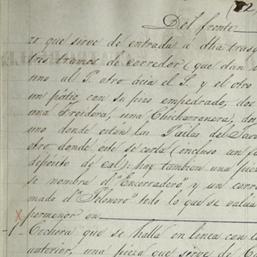 72
Del frente
zo que sirve de entrada a dha tras
tres tramos de corredor (que dan
uno al P. otro ácia el S. y el otro
un patio con su piso empedrado, dos
una Freidera, una Chicharronera, do
uno donde estan las Pailas del Jabo
otro donde este se corta (incluso un
deposito de cal) hay tambien una pie
se nombra el "Encerradero" y un corre
mado el "Polvero" todo lo que se valua
pormenor en
Cochera que se halla en linea con la
anterior, una pieza que sirve de